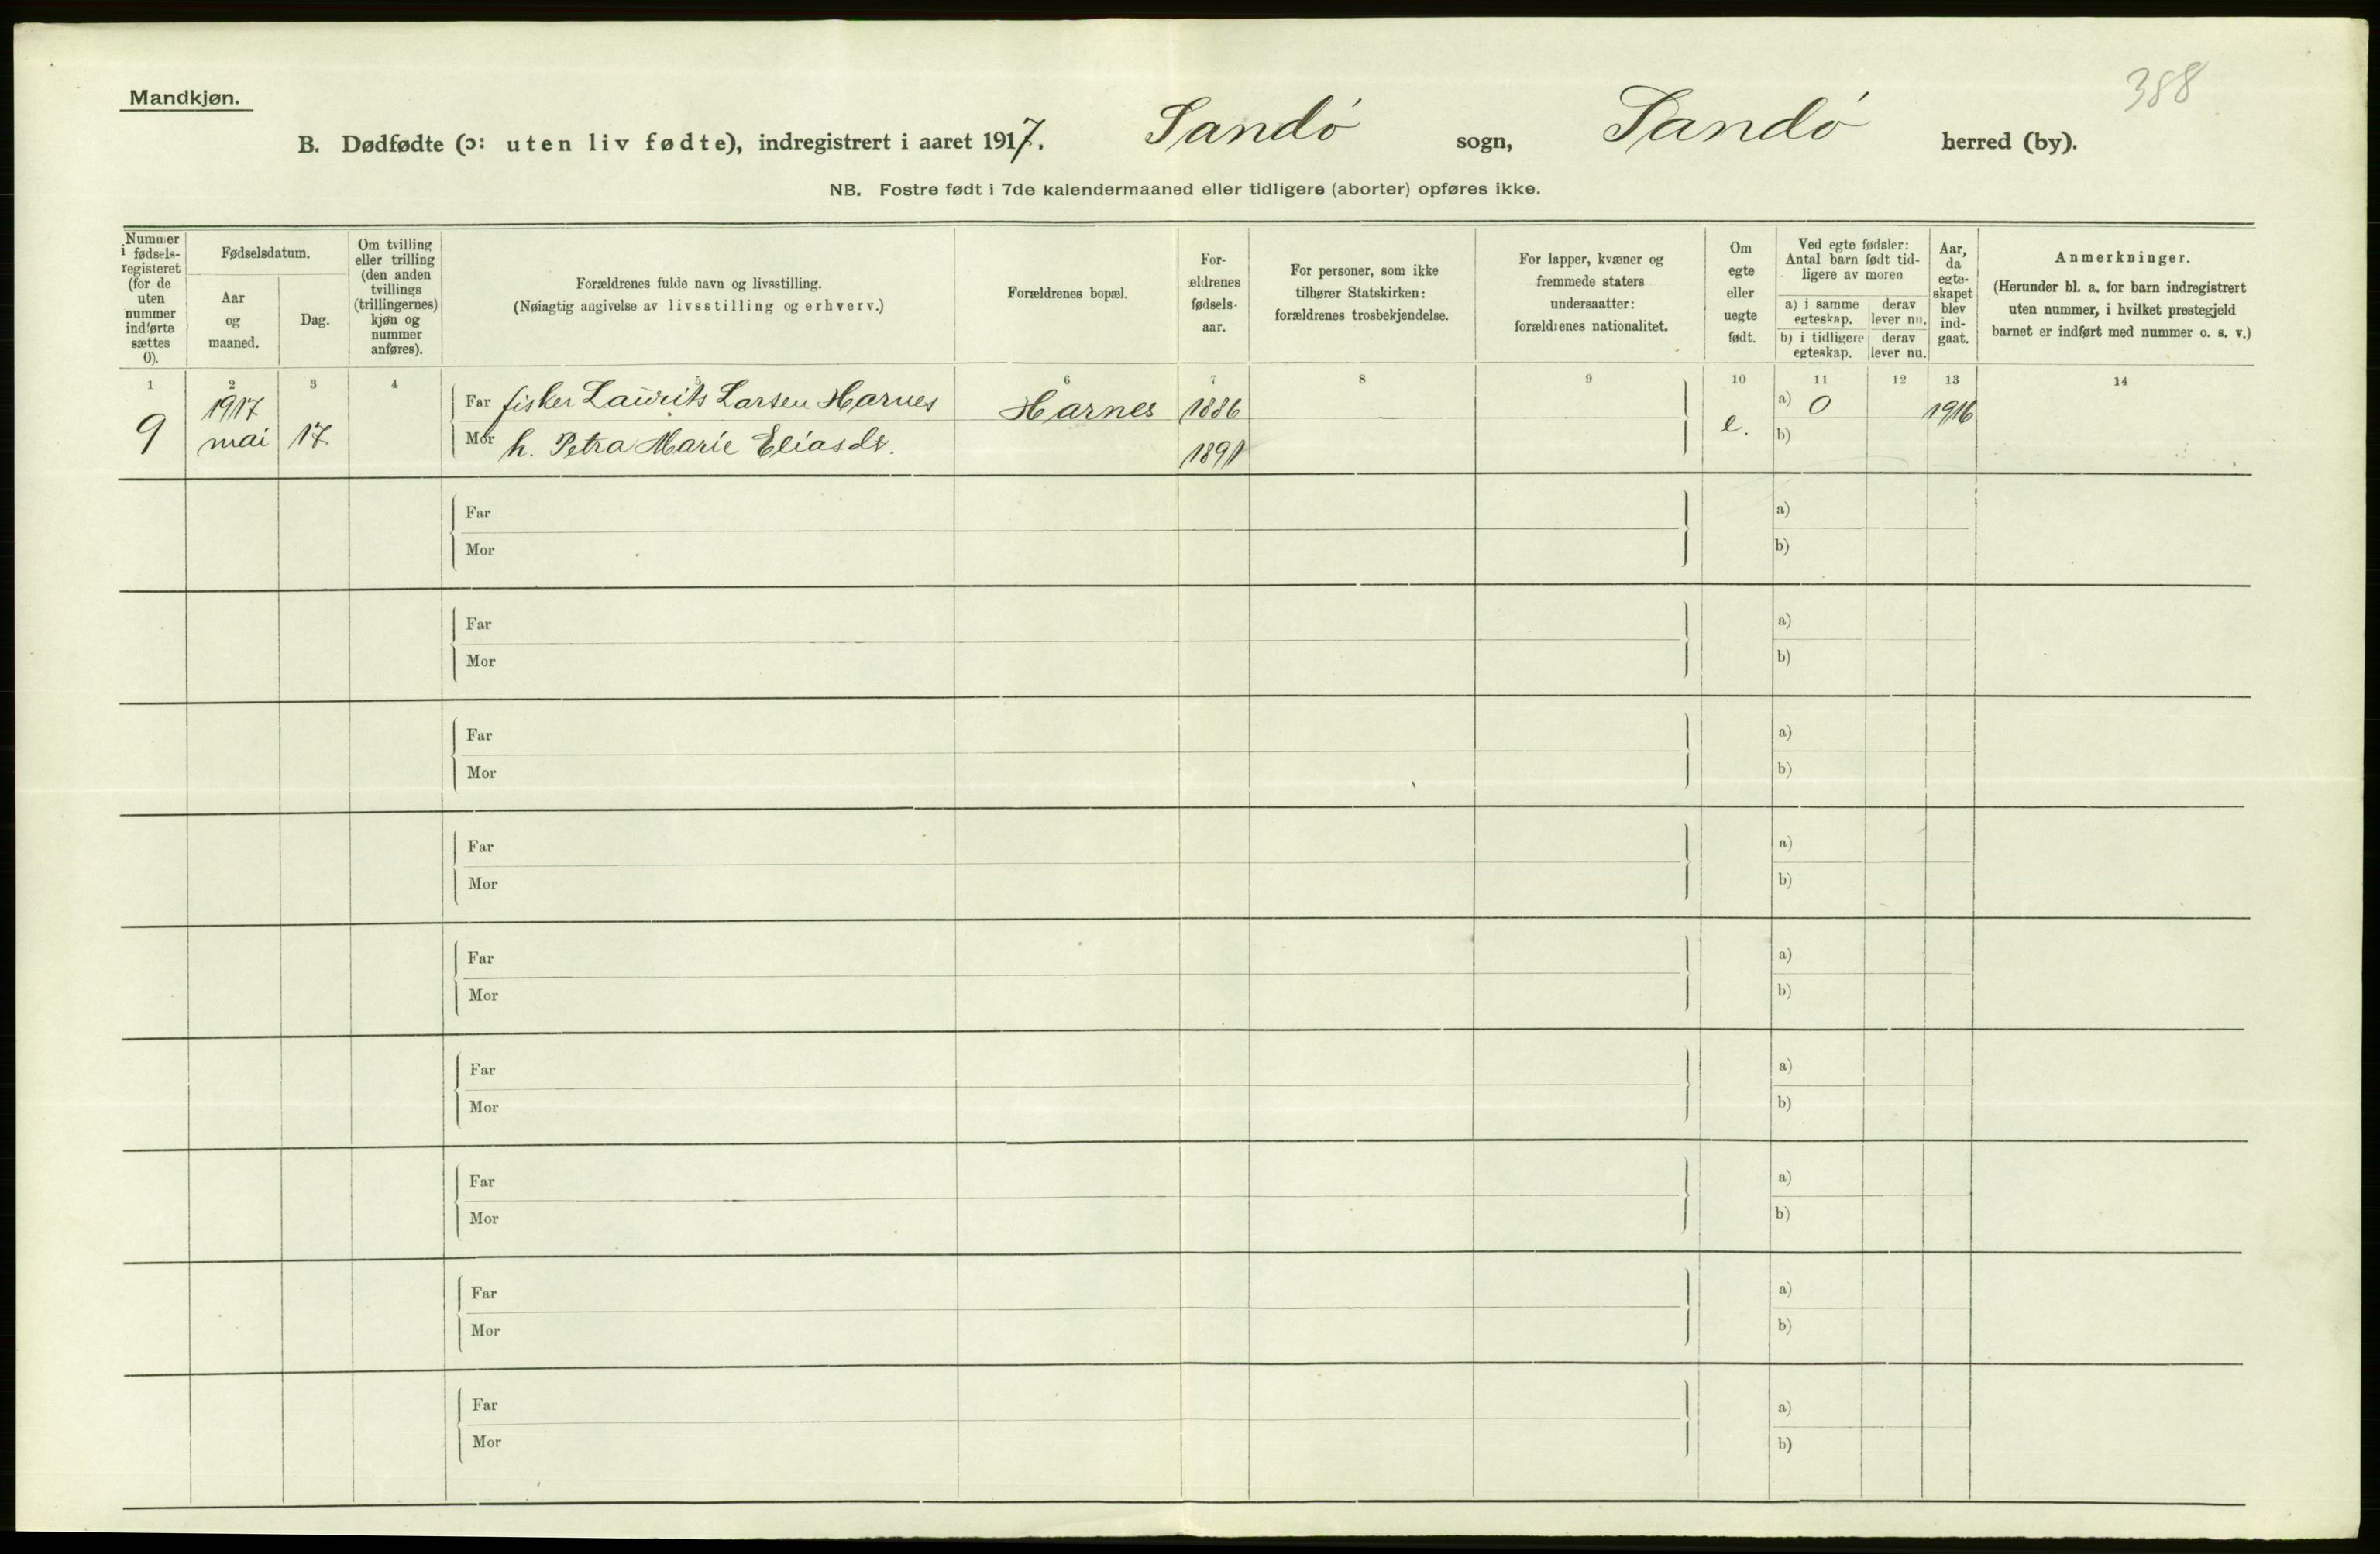 388
Mandkjøn.
B. Dødfødte (ɔ: uten liv fødte), indregistrert i aaret 1917. Sandö sogn, Sandö herred (by).
NB. Fostre født i 7de kalendermaaned eller tidligere (aborter) opføres ikke.
Nummer
i fødsels-
registeret
(for de
uten
nummer
indførte
sættes
0).
Fødselsdatum.
Aar
og
maaned.
Dag.
Om tvilling
eller trilling
(den anden
tvillings
(trillingernes)
kjøn og
nummer
anføres).
Forældrenes fulde navn og livsstilling.
(Nøiagtig angivelse av livsstilling og erhverv.)
Forældrenes bopæl.
For-
ældrenes
fødsels-
aar.
For personer, som ikke
tilhører Statskirken:
forældrenes trosbekjendelse.
For lapper, kvæner og
fremmede staters
undersaatter:
forældrenes nationalitet.
Om
egte
eller
uegte
født.
Ved egte fødsler:
Antal barn født tid-
ligere av moren
a) i samme
egteskap.
derav
lever nu.
b) i tidligere
egteskap.
derav
lever nu.
Aar,
da
egte-
skapet
blev
ind-
gaat.
Anmerkninger.
(Herunder bl. a. for barn indregistrert
uten nummer, i hvilket prestegjeld
barnet er indført med nummer o. s. v.)
1 2 3 4 5 6 7 8 9 10 11 12 13 14
9 1917 mai 17
Far fisker Laurits Larsen Harnes Harnes 1886 — — a) 0 1916
Mor h. Petra Marie Eliasdt. 1891 e. b)
Far a)
Mor b)
Far a)
Mor b)
Far a)
Mor b)
Far a)
Mor b)
Far a)
Mor b)
Far a)
Mor b)
Far a)
Mor b)
Far a)
Mor b)
Far a)
Mor b)